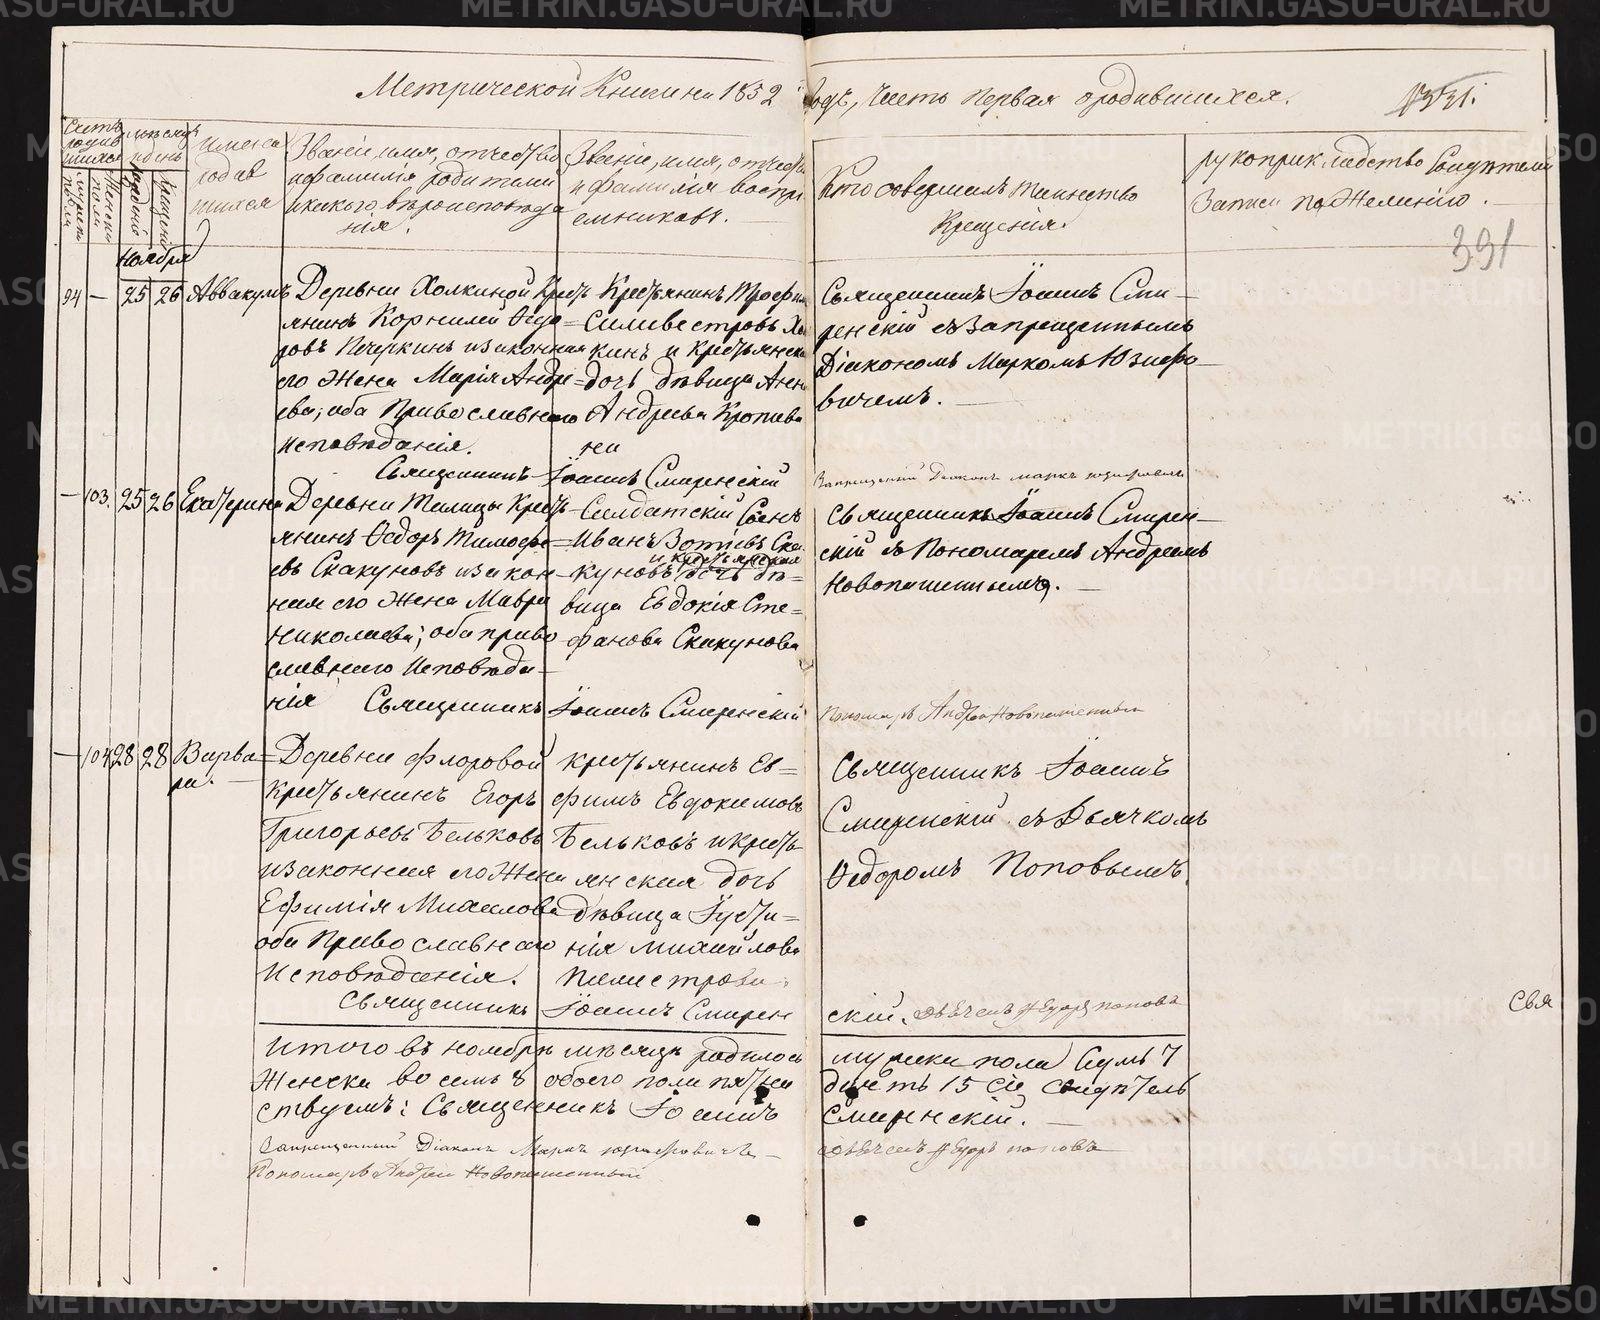 Метрической Книги на 1852 годъ, Часть Первая о родившихся.
1331.
391
Счетъ родившихся
мужеска пола
Женска пола
мѣсяцъ и день
рожденія
крещенія
имена родившихся
Званіе, имя, отчество и фамилія родителей и какого вѣроисповѣданія.
Званіе, имя, отчество и фамилія воспріемниковъ.
Кто совершалъ таинство Крещенія.
рукоприкладство свидѣтелей Записи по Желанію.
Ноября
94 — 25 26 Аввакумъ
Деревни Холкиной Кресть
янинъ Корнилей Ѳедо=
ровъ Печеркинъ и законная
его Жена Марія Андре=
ева; оба Православнаго
Исповѣданія.
Крестьянинъ Трофим
Силиверстровъ Хо
кинъ и крестьянска
дочь дѣвица Анна
Андреева Кропива
на
Священникъ Іоаннъ Смиренскій
Священникъ Іоаннъ Сми—
ренскій съ Запрещеннымъ
Діакономъ Маркомъ Юзефо—
вичемъ. —
Запрещенный Діаконъ Маркъ Юзефовичъ
— 103. 25 26 Екатерина
Деревни Талицы Кресть
янинъ Ѳедоръ Тимофе=
евъ Скакуновъ и закон—
ная его Жена Мавра
Николаева; оба право
славнаго Исповѣда—
нія
Солдатскій Сынъ
Иванъ Зотіевъ Ска
куновъ и крестьянская дочь дѣ=
вица Евдокія Сте=
фанова Скакунова
Священникъ Іоаннъ Смиренскій
Священникъ Іоаннъ Смирен—
скій съ Пономаремъ Андреемъ
Новопашеннымъ. —
Пономарь Андрей Новопашенный
— 104 28 28 Варва=
ра. —
Деревни Флоровой
Крестьянинъ Егоръ
Григорьевъ Бѣльковъ
и законная его Жена
Ефимія Михайлова
оба Православнаго
Исповѣданія.
крестьянинъ Ев=
фимъ Евдокимовъ
Бѣльковъ и кресть
янская дочь
дѣвица Іусти=
нія Михайлова
Священникъ Іоаннъ Смирен
скій.
Священникъ Іоаннъ
Смиренскій съ Дьячкомъ
Ѳедоромъ Поповымъ.
Дьячекъ Ѳедоръ Поповъ
Свя
Итого въ ноябрѣ мѣсяцѣ родилось мужска пола Семь 7
Женска восемь 8 обоего пола пятна дцать 15 Сіе свидѣтель
ствуемъ: Священникъ Іоаннъ Смиренскій. —
Запрещенный Діаконъ Маркъ Юзефовичъ —
Дьячекъ Ѳедоръ Поповъ
Пономарь Андрей Новопашенный
METRIKI.GASU-URAL.RU